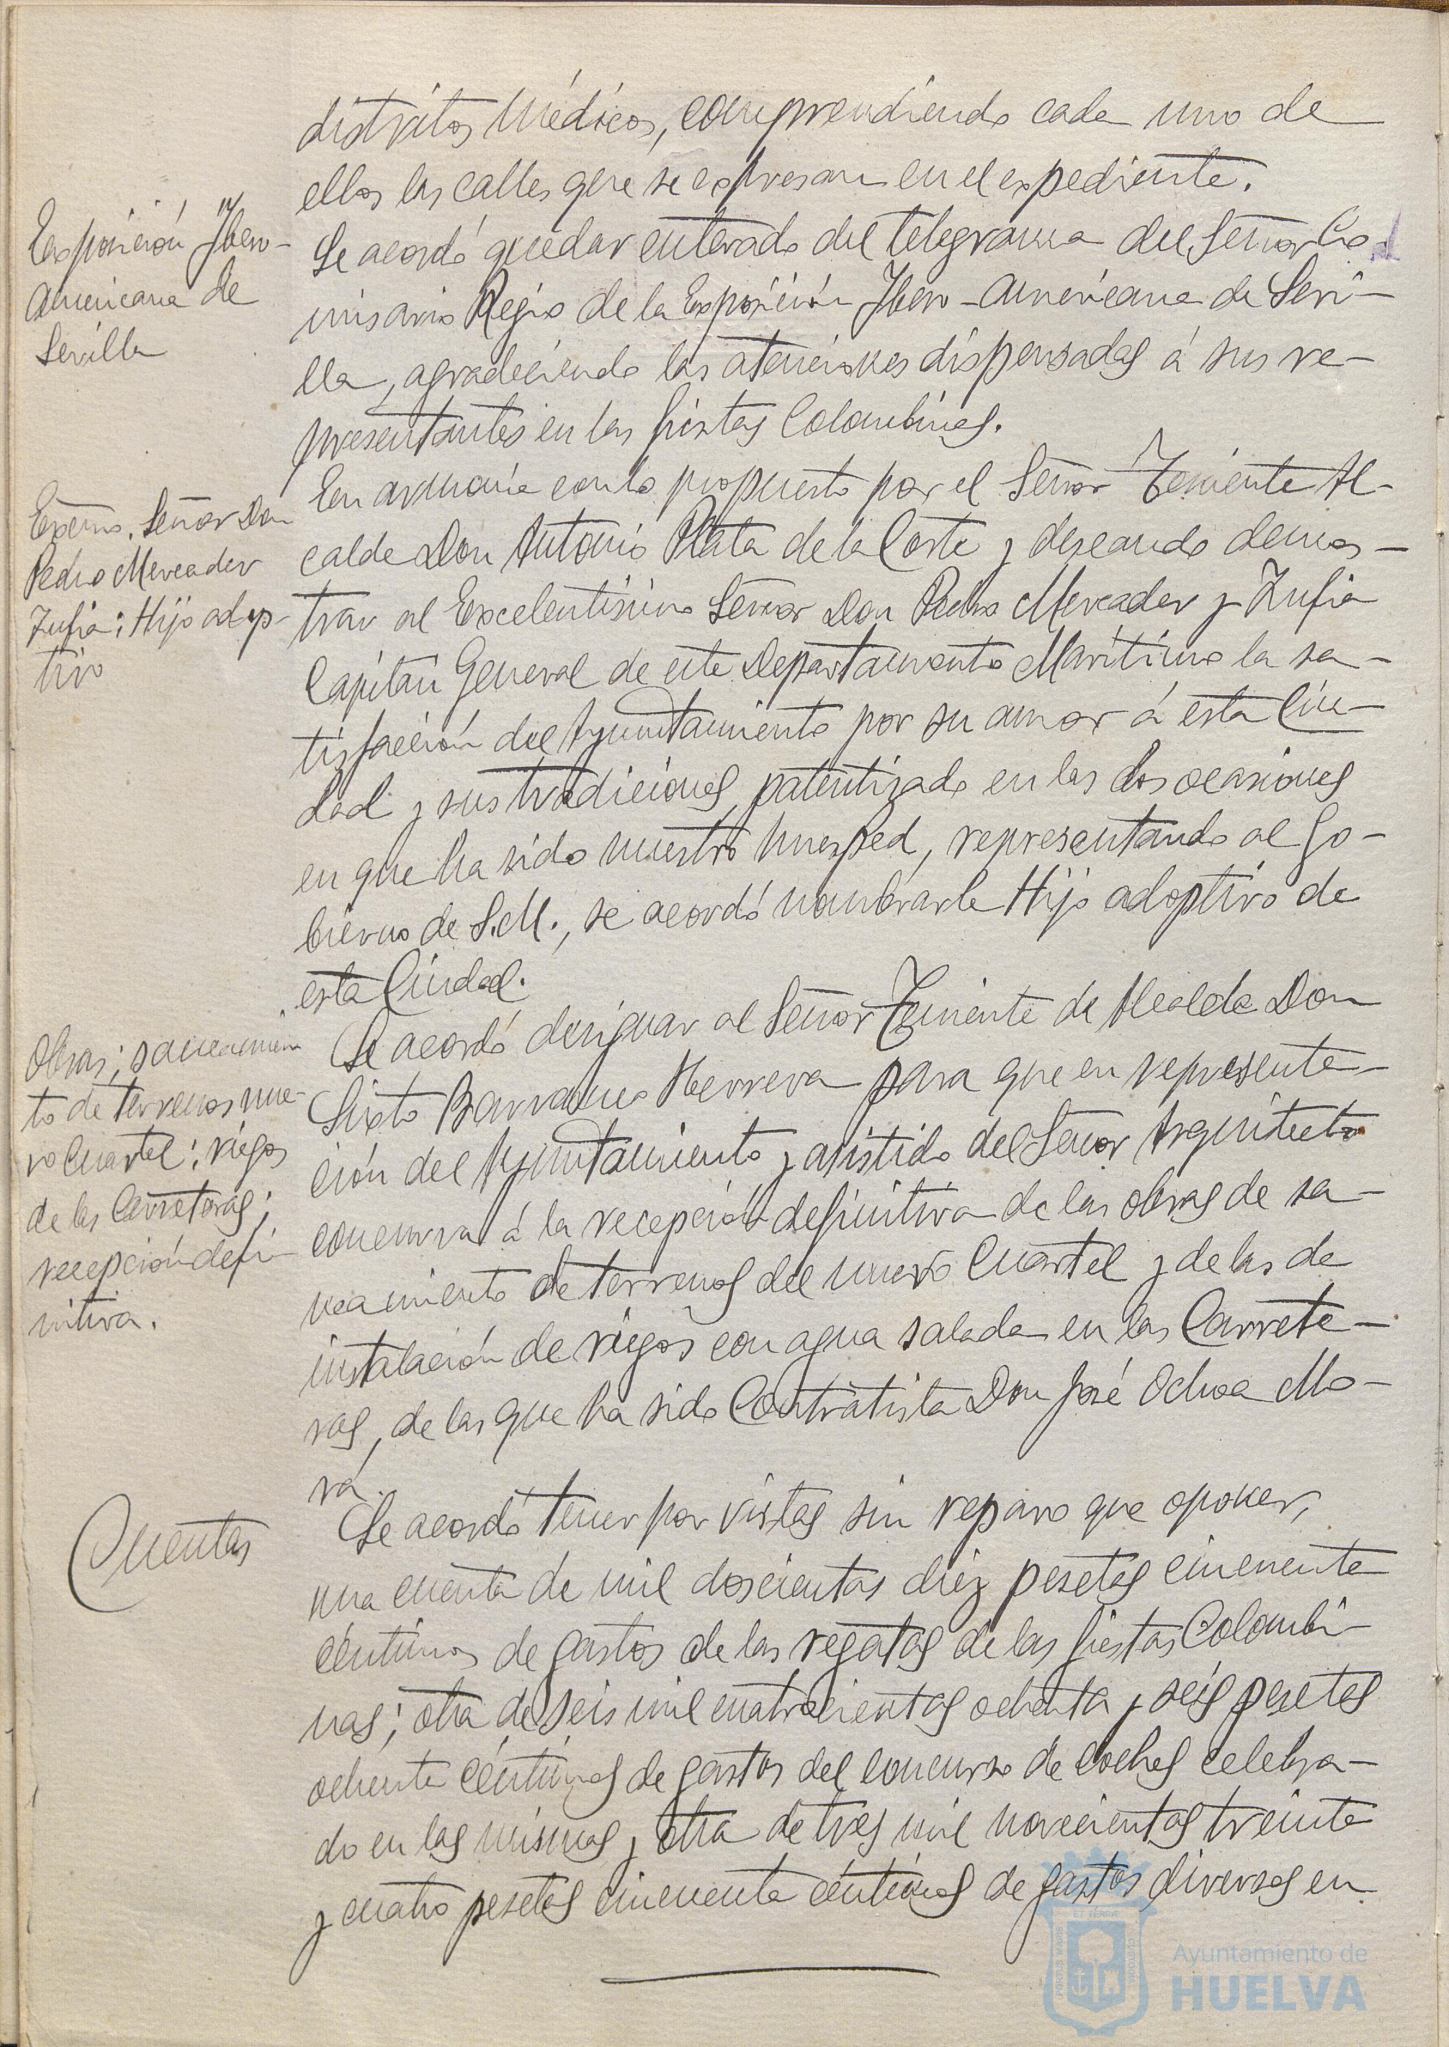 distritos Médicos, comprendiendo cada uno de
ellos las calles que se expresan en el expediente.
Exposición Ibero-
Americana de
Sevilla
Se acordó quedar enterado del telegrama del Señor Co-
misario Regio de la Exposición Ibero-Americana de Sevi-
lla, agradeciendo las atenciones dispensadas á sus re-
presentantes en las fiestas Colombinas.
Excmo. Señor Don
Pedro Mercader
Zufia; Hijo adop-
tivo
En armonía con lo propuesto por el Señor Teniente Al-
calde Don Antonio Plata de la Corte y deseando demos-
trar al Excelentísimo Señor Don Pedro Mercader y Zufia
Capitán General de este Departamento Marítimo la sa-
tisfacción del Ayuntamiento por su amor á esta Ciu-
dad y sus tradiciones, patentizado en las dos ocasiones
en que ha sido nuestro huesped, representando al Go-
bierno de S.M., se acordó nombrarle Hijo adoptivo de
esta Ciudad.
Obras; saneamien
to de terrenos nue-
vo Cuartel; riegos
de las Carreteras;
recepción defi
nitiva.
Se acordó designar al Señor Teniente de Alcalde Don
Sixto Barranco Herrera para que en representa-
ción del Ayuntamiento y asistido del Señor Arquitecto
concurra á la recepción definitiva de las obras de sa-
neamiento de terrenos del nuevo Cuartel y de las de
instalación de riegos con agua salada en las Carrete-
ras, de las que ha sido Contratista Don José Ochoa Mo-
ra.
Cuentas
Se acordó tener por vistas sin reparo que oponer,
una cuenta de mil doscientas diez pesetas cincuenta
céntimos de gastos de las regatas de las fiestas Colombi-
nas; otra de seis mil cuatrocientas ochenta y seis pesetas
ochenta céntimos de gastos del concurso de coches celebra-
do en las mismas y otra de tres mil novecientas treinta
y cuatro pesetas cincuenta céntimos de gastos diversos en
Ayuntamiento de
HUELVA